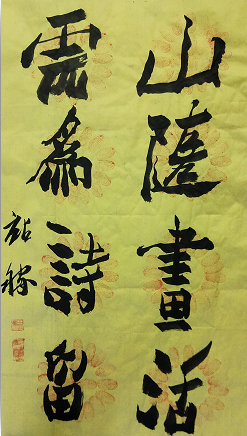 山隨畫活
雲為詩留